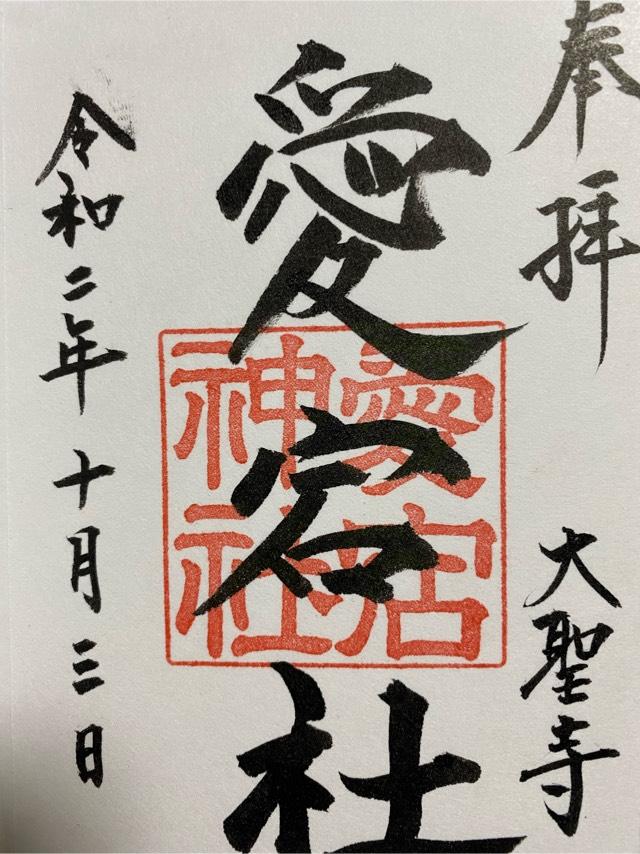 奉拝
大聖寺
愛宕社
愛宕
神社
令和二年十月三日